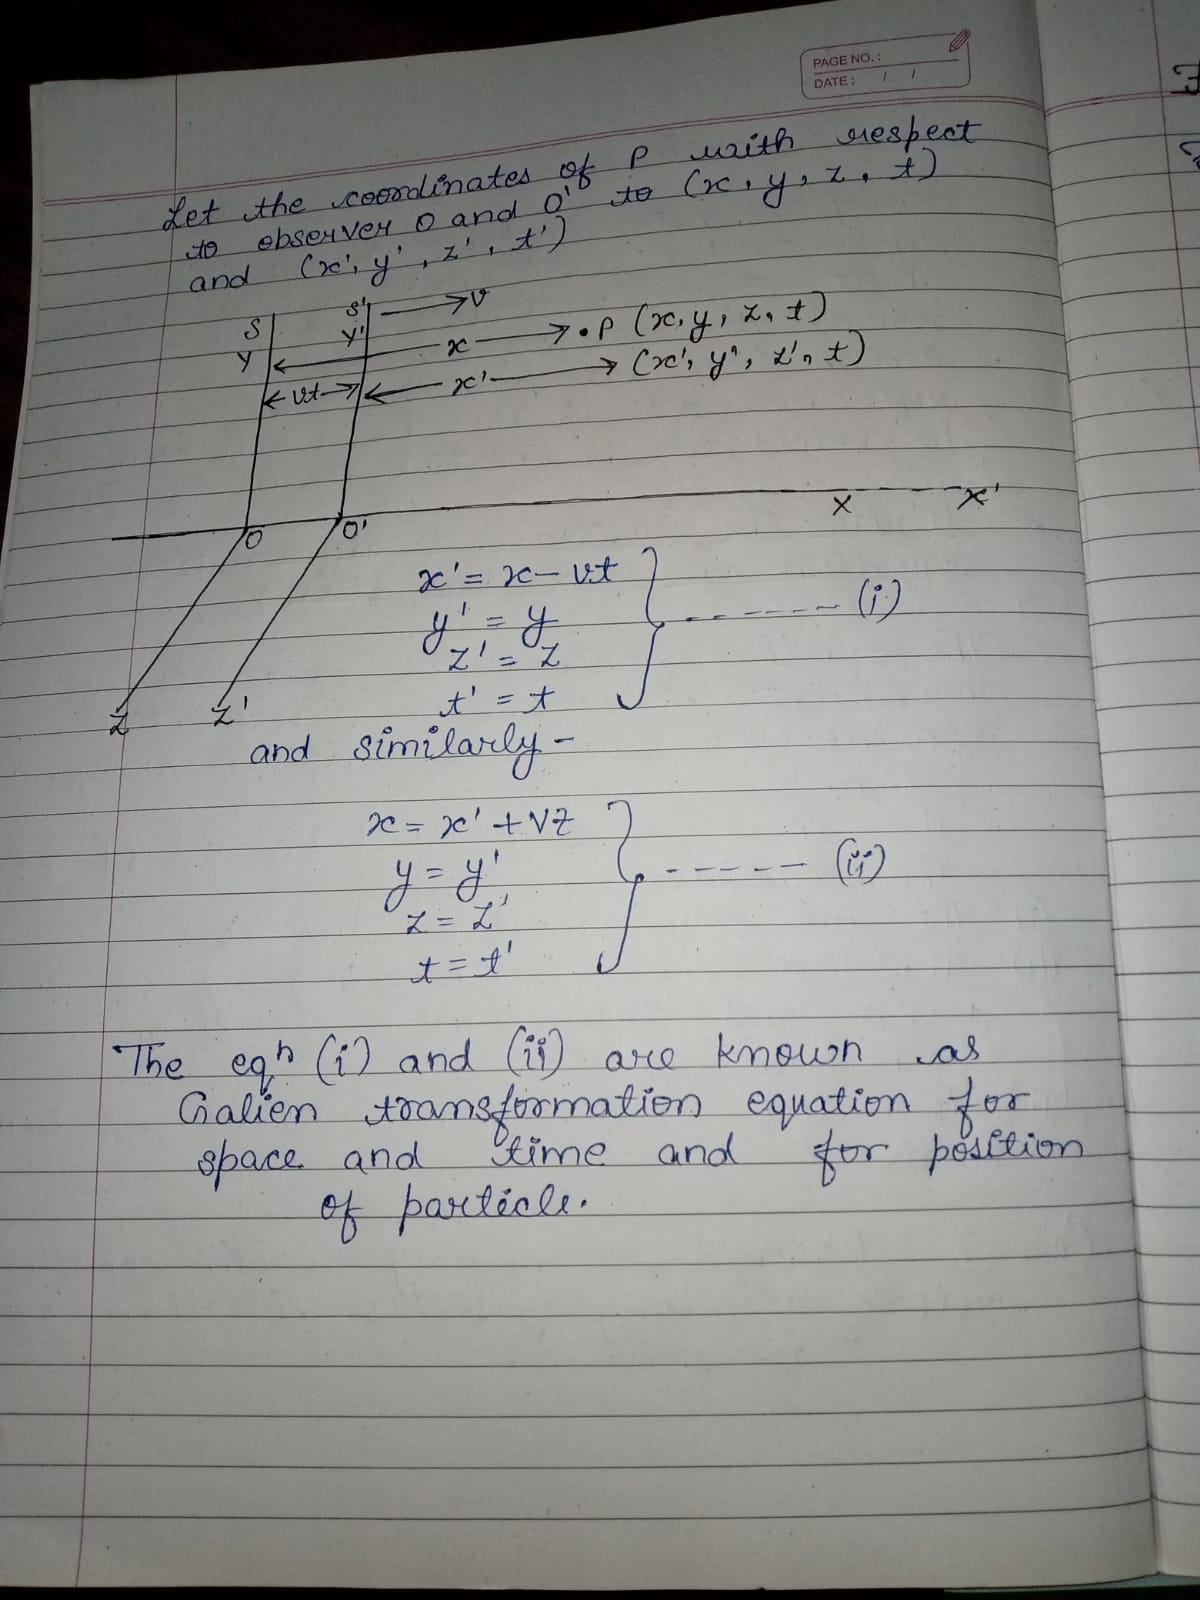 PAGE NO.:
DATE: / /
Let the coordinates of P with respect
to observer O and O' to (x, y, z, t)
and (x', y', z', t')
S S' → v
Y Y' x • P (x, y, z, t)
vt x' (x', y'', z', t)
O O' X X'
x' = x - vt
y' = y ------ (i)
z' = z
t' = t
Z Z'
and similarly -
x = x' + vz
y = y' ------ (ii)
z = z'
t = t'
The eqn (i) and (ii) are known as
Galien transformation equation for
space and time and for position
of particle.